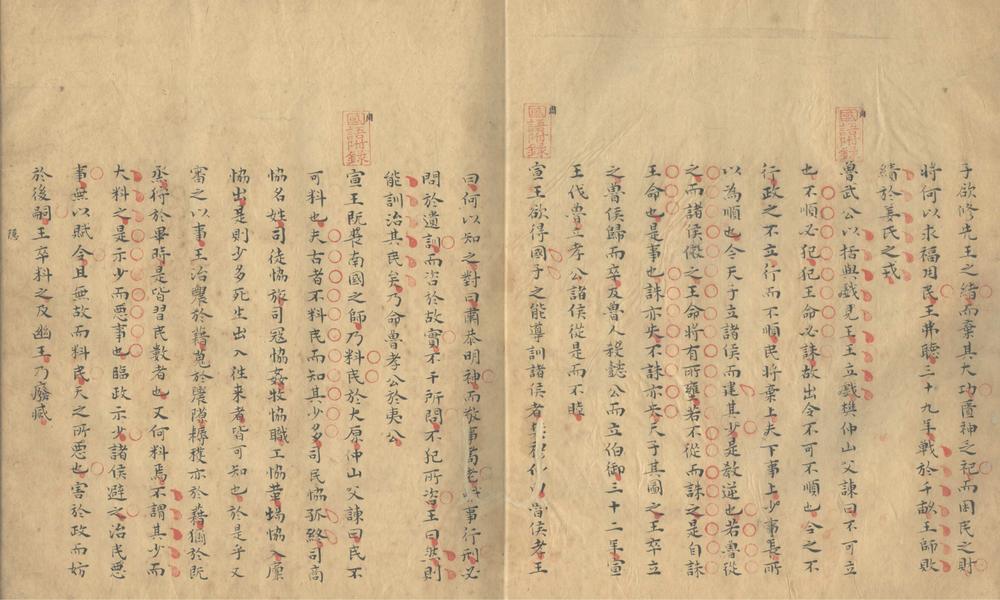 子欲修先王之緒而棄其大功匱神乏祀而困民之財
將何以求福用民王弗聽三十九年戰於千畝王師敗
績於姜氏之戎
國語附錄
魯武公以括與戲見王王立戲樊仲山父諫曰不可立
也不順必犯犯王命必誅故出令不可不順也令之不
行政之不立行而不順民將棄上夫下事上少事長所
以為順也今天子立諸侯而建其少是教逆也若魯從
之而諸侯傚之王命將有所壅若不從而誅之是自誅
王命也是事也誅亦失不誅亦失天子其圖之王卒立
之魯侯歸而卒及魯人殺懿公而立伯御三十二年宣
王伐魯立孝公諸侯從是而不睦
國語附錄
宣王欲得國子之能導訓諸侯者魯侯孝王
曰何以知之對曰肅恭明神而敬事耇老事行刑必
問於遺訓而咨於故實不干所問不犯所咨王曰然則
能訓治其民矣乃命魯孝公於夷公
國語附錄
宣王既喪南國之師乃料民於大原仲山父諫曰民不
可料也夫古者不料民而知其少多司民協孤終司商
協名姓司徒協旅司寇協姦牧協職工協革場協入廩
協出是則少多死生出入往來者皆可知也於是乎又
審之以事王治農於藉蒐於農隙耨穫亦於藉獮於既
烝狩於畢時是皆習民數者也又何料焉不謂其少而
大料之是示少而惡事也臨政示少諸侯避之治民惡
事無以賦令且無故而料民天之所惡也害於政而妨
於後嗣王卒料之及幽王乃廢滅